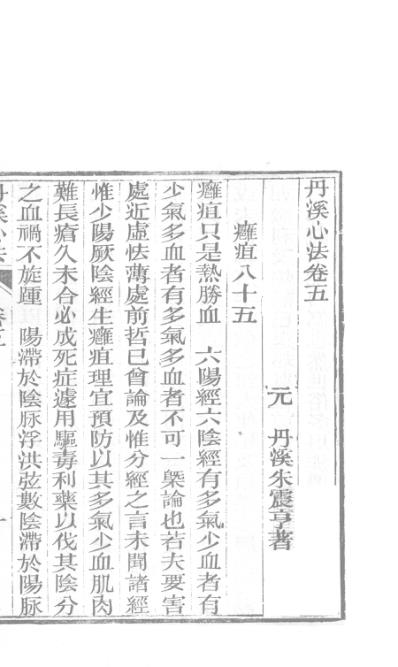 丹溪心法卷五
元　丹溪朱震亨著
癰疽八十五
癰疽只是熱勝血　六陽經六陰經有多氣少血者有
少氣多血者有多氣多血者不可一槩論也若夫要害
處近虛怯薄處前哲已曾論及惟分經之言未聞諸經
惟少陽厥陰經生癰疽理宜預防以其多氣少血肌肉
難長瘡久未合必成死症遽用驅毒利藥以伐其陰分
之血禍不旋踵　陽滯於陰脉浮洪弦數陰滯於陽脉
丹溪心法　卷五　一